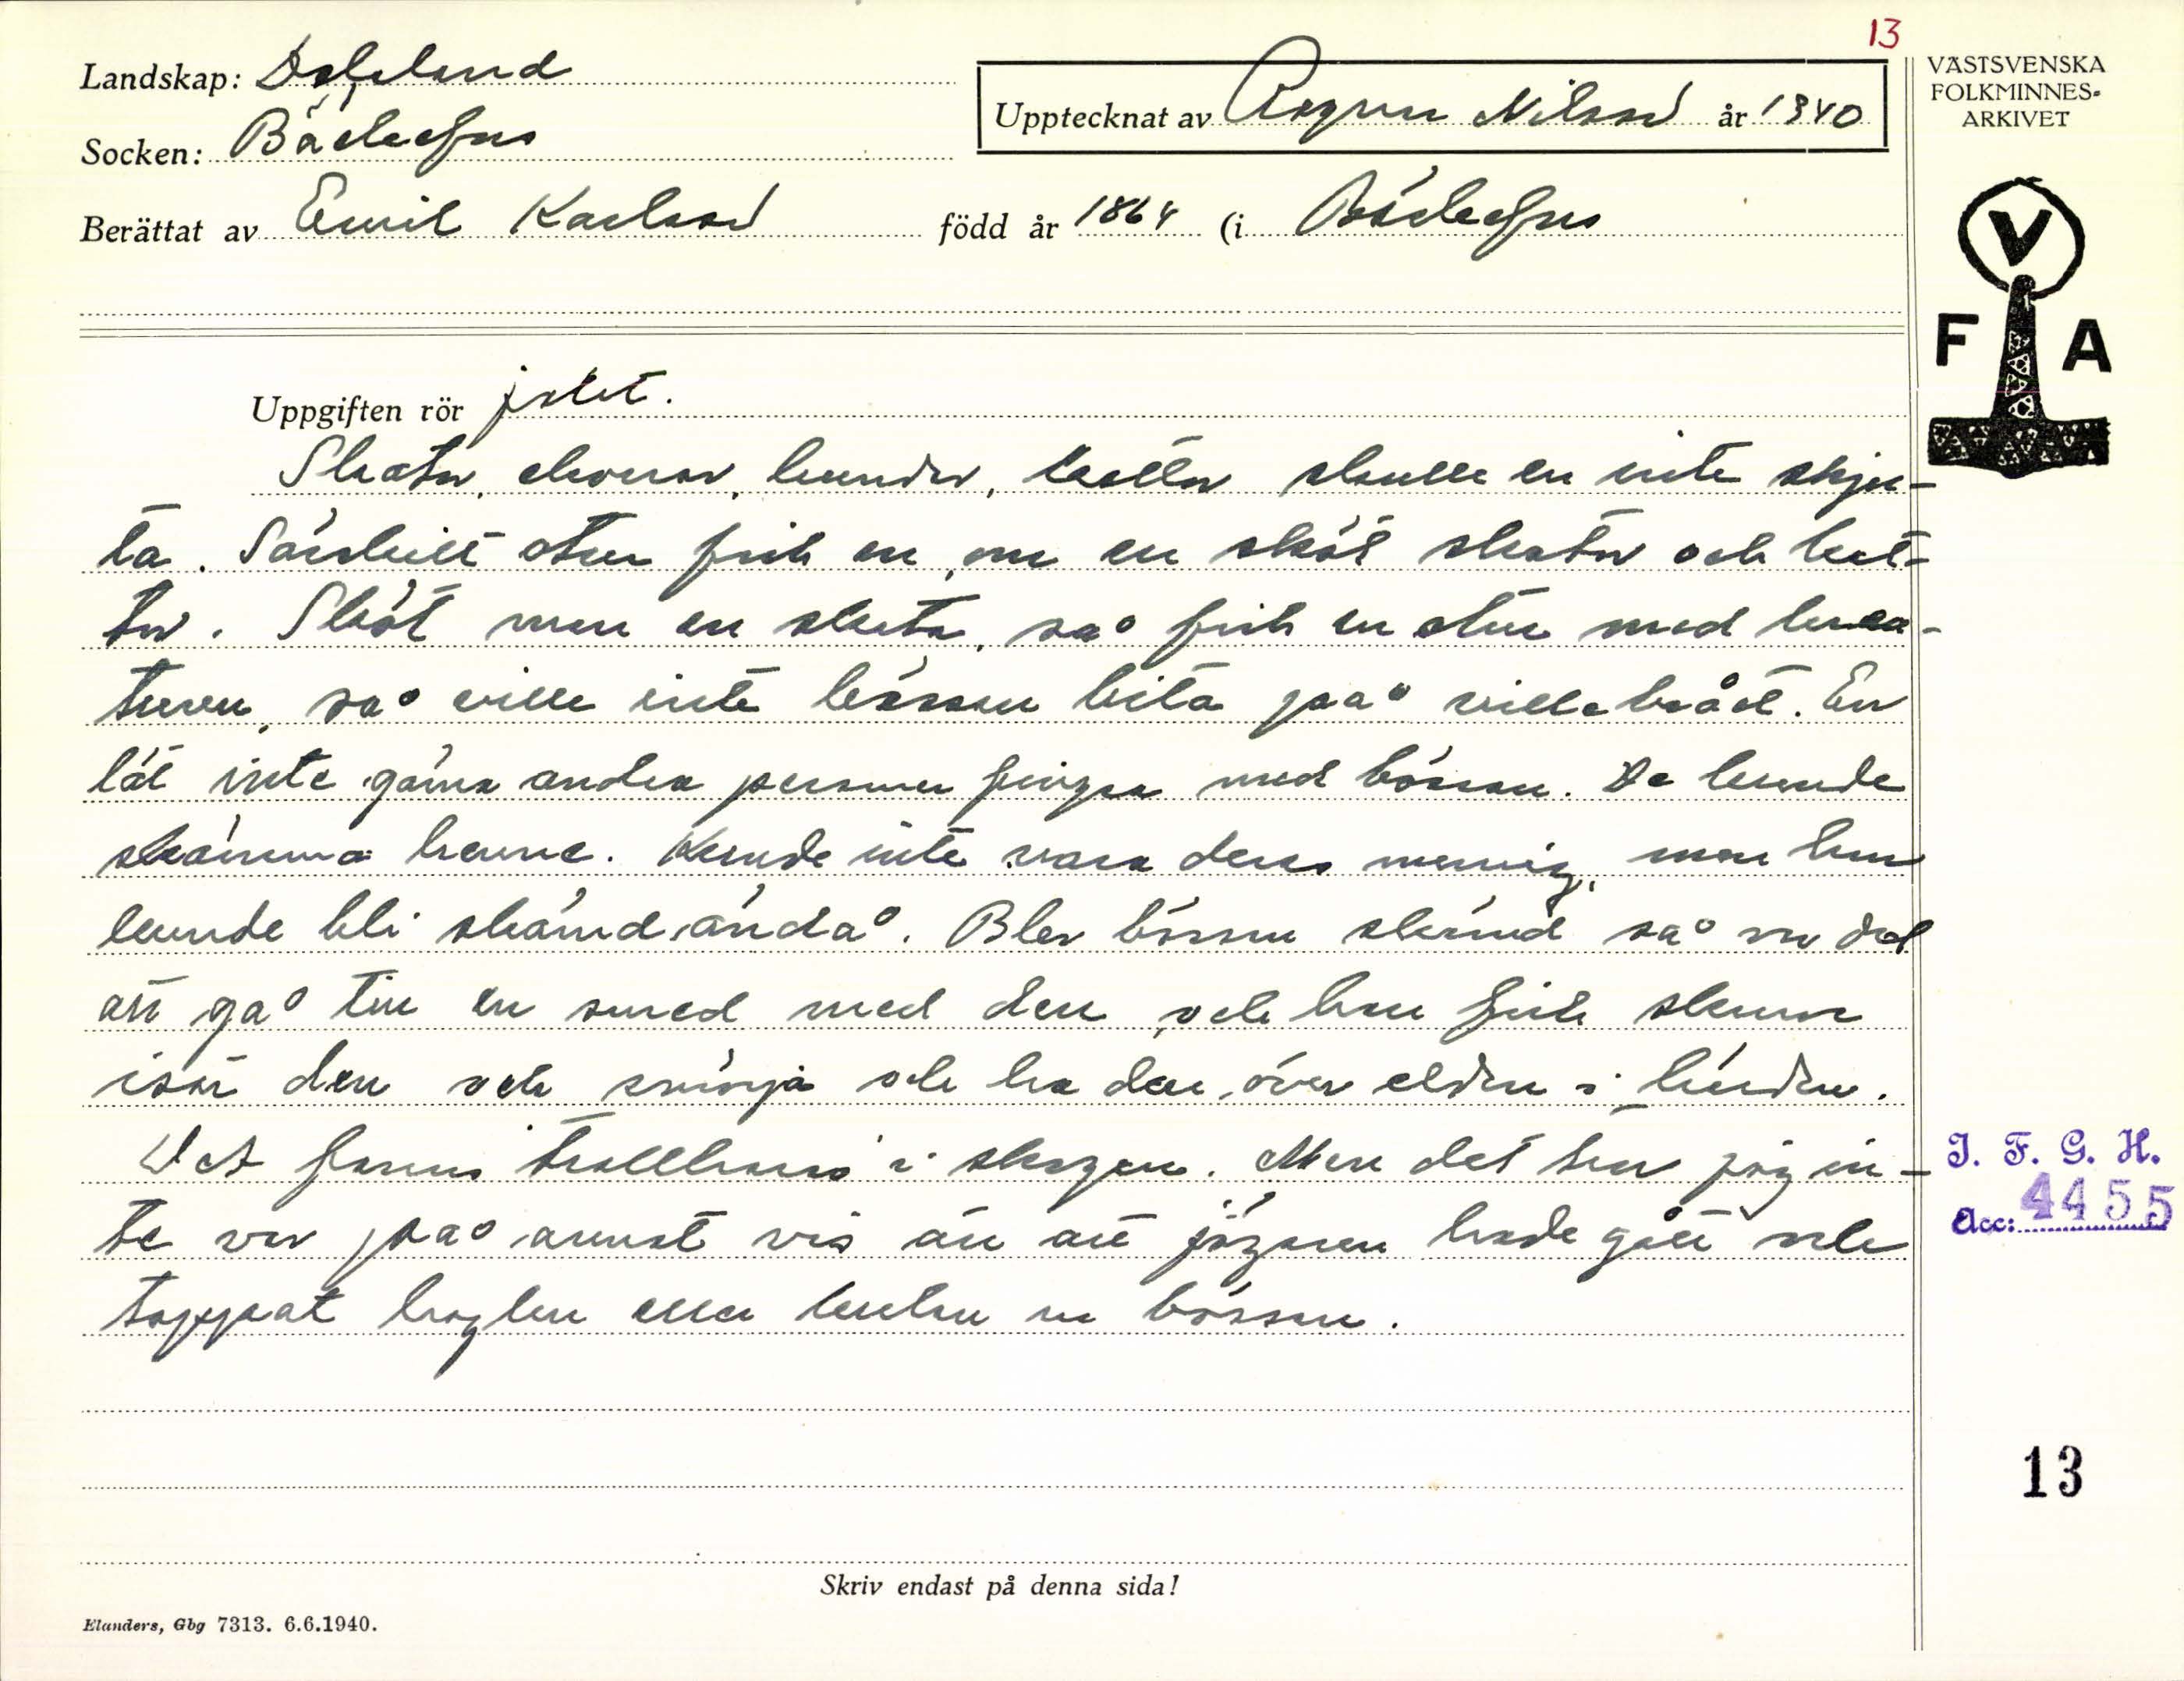 13
Landskap: Dalsland
Upptecknat av Ragnar Nilsson år 1940
VÄSTSVENSKA
FOLKMINNES-
ARKIVET
Socken: Bäckefors
Berättat av Emil Karlsson född år 1864 (i Bäckefors
V
F A
Uppgiften rör jakt.
Skator, hundar, katter skulle en inte skju-
ta. Särskilt otur fick en, om en sköt skator och kat-
ter. Sköt man en skata, så fick en otur med krea-
turen, så ville inte bössan bita på villebråd. En
lät inte gärna andra personer fingra med bössan. De kunde
skämma henne. Kunde inte vara deras mening, men hon
kunde bli skämd ändå. Blev bössan skämd så var det
att gå till en smed med den, och han fick skruva
isär den och smörja och ha den över elden i härden.
Det fanns trollhare i skogen. Men det tror jag in-
te var på annat vis än att jägaren hade gått och
tappat haglen eller kulan ur bössan.
I. F. G. H.
Acc: 4455
13
Skriv endast på denna sida!
Elanders, Gbg 7313. 6.6.1940.